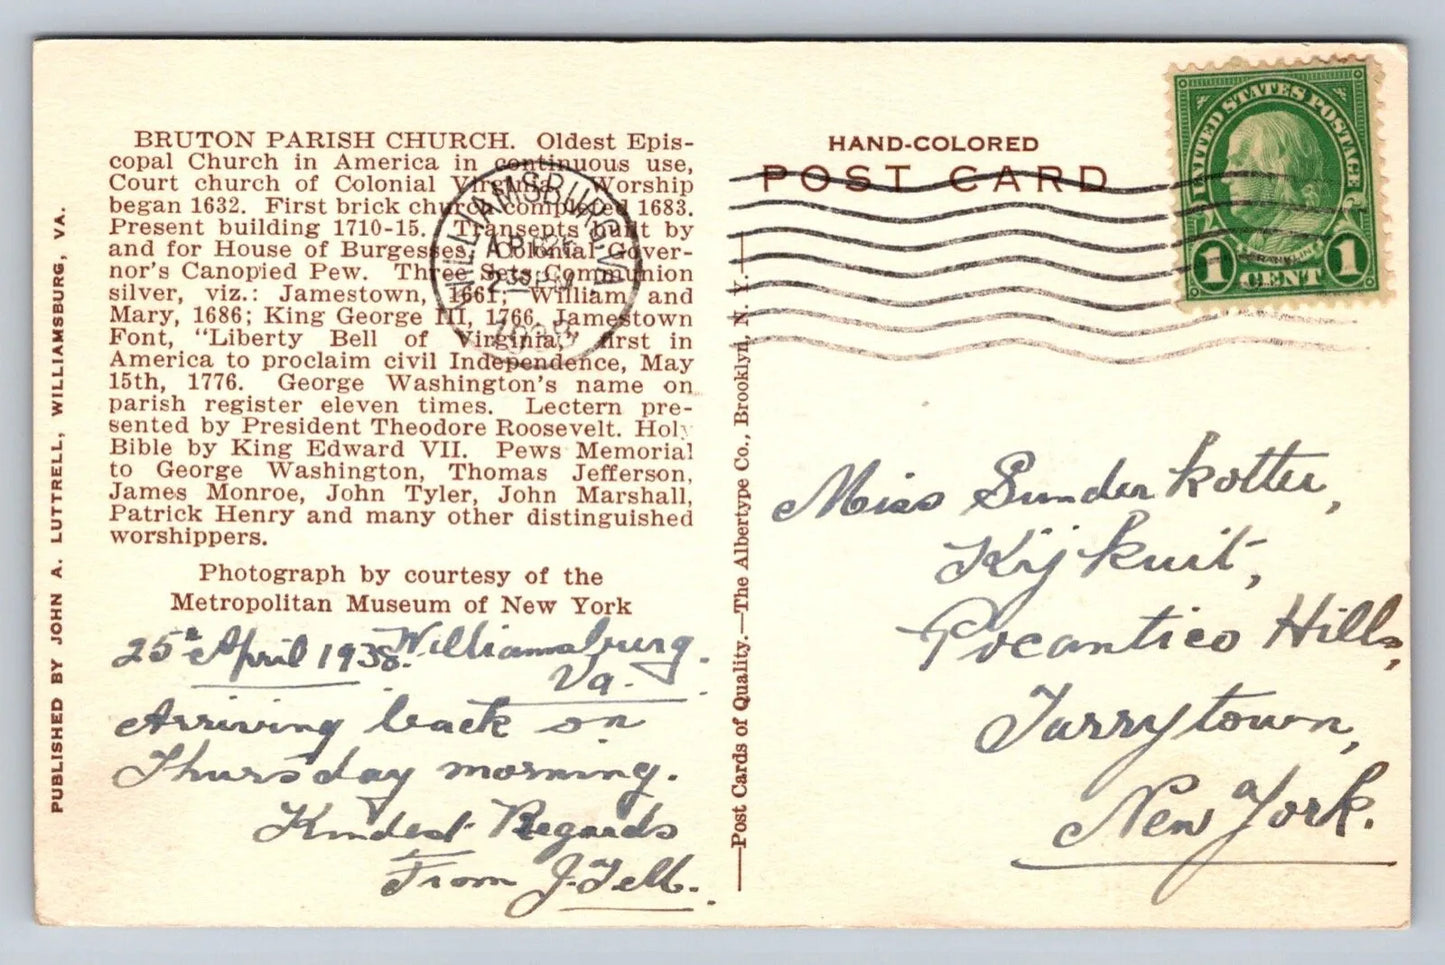 BRUTON PARISH CHURCH. Oldest Epis-
copal Church in America in continuous use,
Court church of Colonial Virginia. Worship
began 1632. First brick church completed 1683.
Present building 1710-15. Transepts built by
and for House of Burgesses, Colonial Gover-
nor's Canopied Pew. Three Sets Communion
silver, viz.: Jamestown, 1661; William and
Mary, 1686; King George III, 1766. Jamestown
Font, "Liberty Bell of Virginia," first in
America to proclaim civil Independence, May
15th, 1776. George Washington's name on
parish register eleven times. Lectern pre-
sented by President Theodore Roosevelt. Holy
Bible by King Edward VII. Pews Memorial
to George Washington, Thomas Jefferson,
James Monroe, John Tyler, John Marshall,
Patrick Henry and many other distinguished
worshippers.
Photograph by courtesy of the
Metropolitan Museum of New York
25th April 1938. Williamsburg.
Va.
Arriving back on
Thursday morning.
Kindest Regards
From J.
PUBLISHED BY JOHN A. LUTTRELL, WILLIAMSBURG, VA.
WILLIAMSBURG VA.
APR 25
PM
1938
—Post Cards of Quality.—The Albertype Co., Brooklyn, N. Y.—
HAND-COLORED
POST CARD
UNITED STATES POSTAGE
FRANKLIN
1 CENT 1
Miss Sunderkotter,
Kijkuit,
Pocantico Hills,
Tarrytown,
New York.